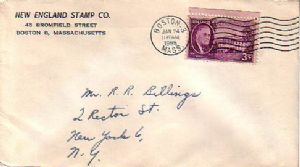 NEW ENGLAND STAMP CO.
45 BROMFIELD STREET
BOSTON 8, MASSACHUSETTS
BOSTON
JAN 24
MASS.
3¢
Mr. R. R. Billings
2 Rector St.
New York 6,
N. Y.